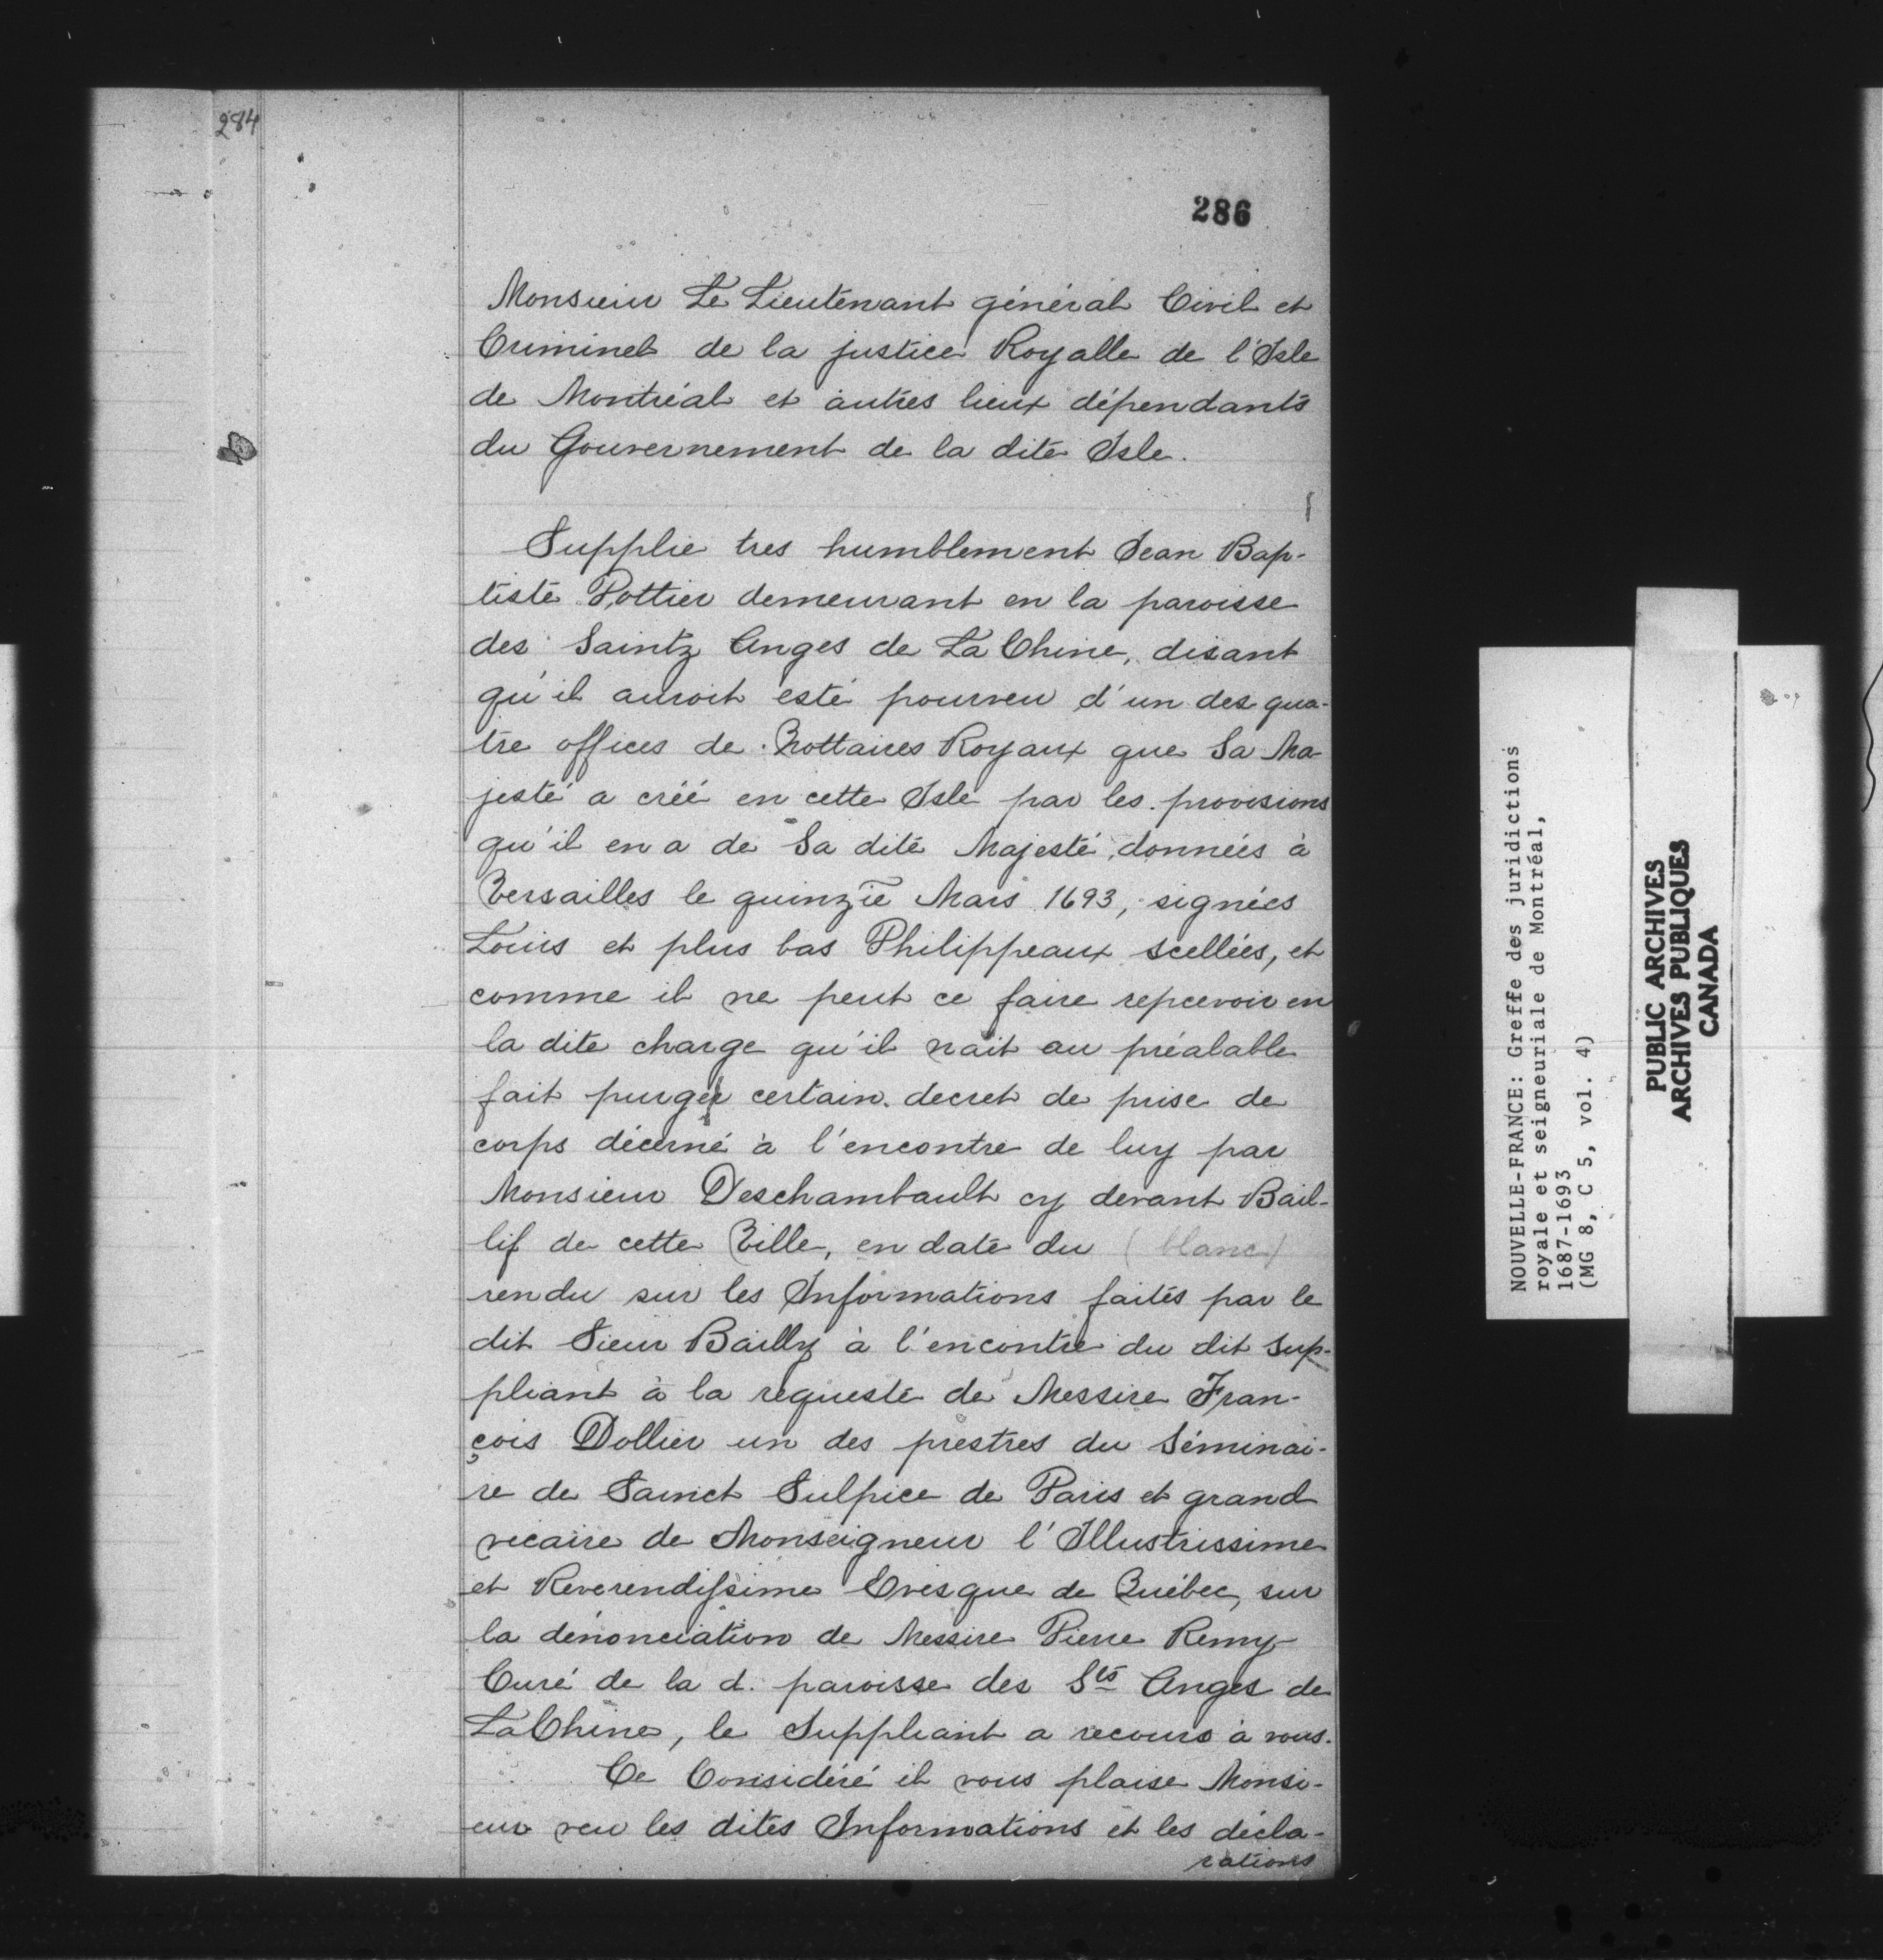 284
286
Monsieur Le Lieutenant général Civil et
Criminel de la justice Royalle de l'Isle
de Montréal et autres lieux dépendants
du Gouvernement de la dite Isle.
Supplie tres humblement Jean Bap-
tiste Pottier demeurant en la paroisse
des Saintz Anges de La Chine, disant
qu'il auroit esté pourveu d'un des qua-
tre offices de Nottaires Royaux que Sa Ma-
jesté a créé en cette Isle par les provisions
qu'il en a de Sa dite Majesté, données à
Versailles le quinzīe Mars 1693, signées
Louis et plus bas Philippeaux scellées, et
comme il ne peut ce faire repcevoir en
la dite charge qu'il nait au préalable
fait purger certain decret de prise de
corps décerné à l'encontre de luy par
Monsieur Deschambault cy devant Bail-
lif de cette Ville, en date du (blanc)
rendu sur les Informations faites par le
dit Sieur Bailly à l'encontre du dit sup-
pliant à la requeste de Messire Fran-
çois Dollier un des prestres du Séminai-
re de Sainct Sulpice de Paris et grand
vicaire de Monseigneur l'Illustrissime
et Reverendissime Evesque de Québec, sur
la dénonciation de Messire Pierre Remy
Curé de la d. paroisse des Sts Anges de
LaChine, le Suppliant a recours à vous.
Ce Considéré il vous plaise Monsi-
eur veu les dites Informations et les décla-
rations
NOUVELLE-FRANCE: Greffe des juridictions
royale et seigneuriale de Montréal,
1687-1693
(MG 8, C 5, vol. 4)
PUBLIC ARCHIVES
ARCHIVES PUBLIQUES
CANADA